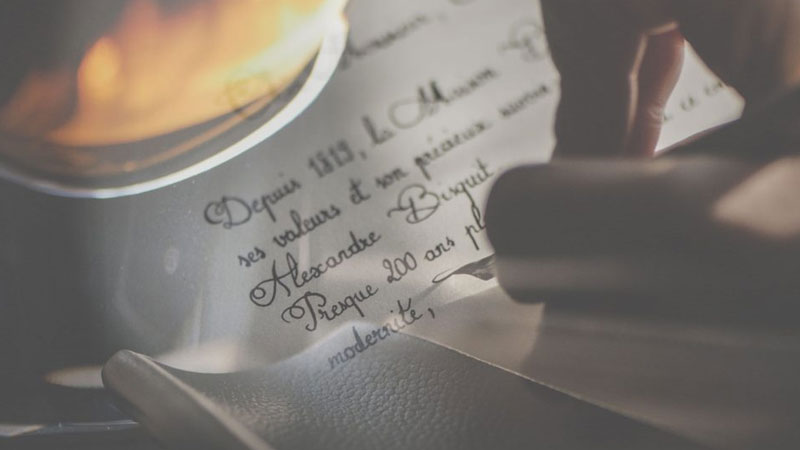 Monsieur,
Depuis 1819, la Maison B
ses valeurs et son précieux
Alexandre Bisquit
Presque 200 ans pl
modernité,
ce